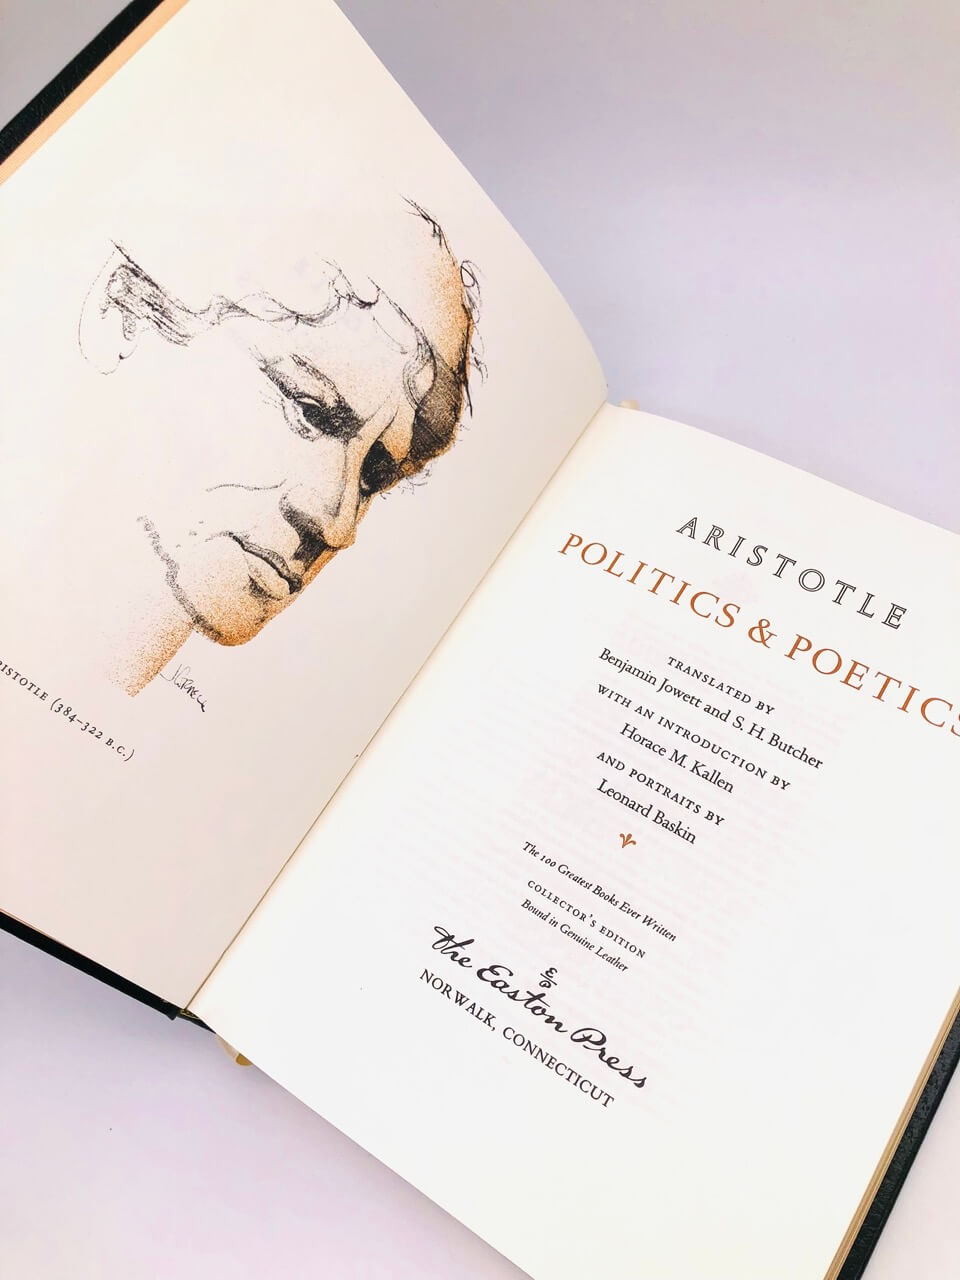 ARISTOTLE (384–322 B.C.)
ARISTOTLE
POLITICS & POETICS
TRANSLATED BY
Benjamin Jowett and S. H. Butcher
WITH AN INTRODUCTION BY
Horace M. Kallen
AND PORTRAITS BY
Leonard Baskin
The 100 Greatest Books Ever Written
COLLECTOR'S EDITION
Bound in Genuine Leather
The Easton Press
NORWALK, CONNECTICUT